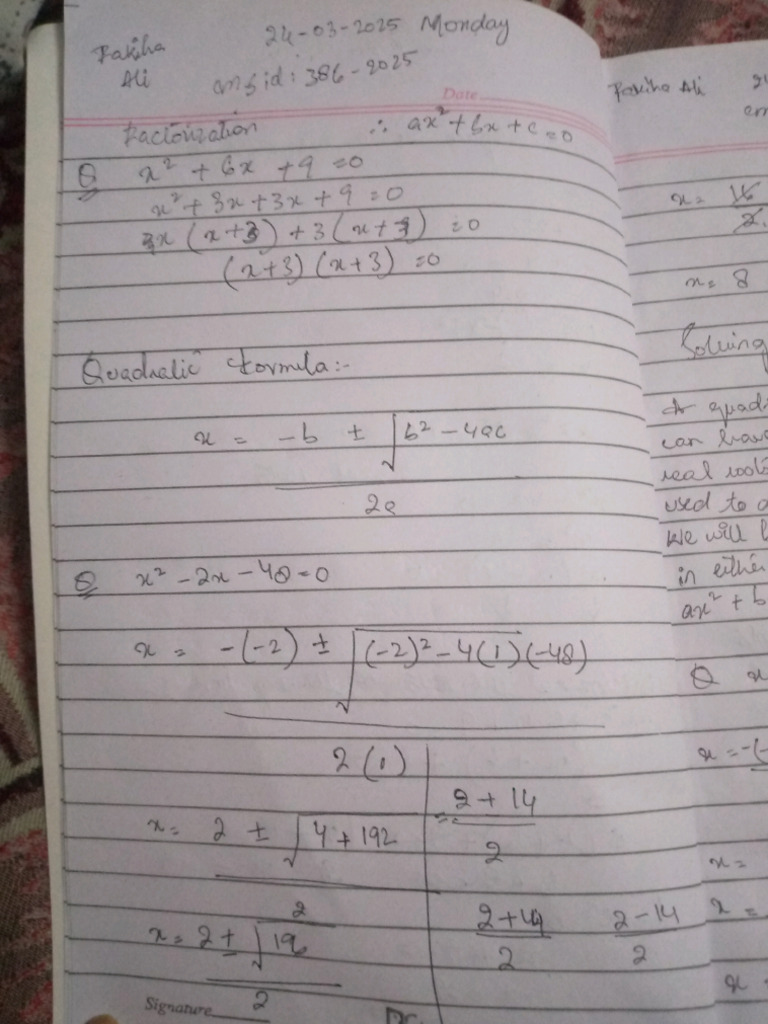 24-03-2025 Monday
Fakiha Ali
cms id: 386-2025
Date
Factorization ∴ ax² + bx + c = 0
Q x² + 6x + 9 = 0
x² + 3x + 3x + 9 = 0
x (x+3) + 3 (x+3) = 0
(x+3) (x+3) = 0
Quadratic Formula:-
x = -b ± √b² - 4ac
2a
Q x² - 2x - 48 = 0
x = -(-2) ± √(-2)² - 4(1)(-48)
2 (1)
x = 2 ± √4 + 192
2
x = 2 ± √196
2
= 2 + 14
2
2+14 2-14
2 2
Signature
Fakiha Ali
x = 16
2
x = 8
Solving
A quad
can have
real
used to
We will
in either
ax² + b
Q x
x = -(-
x =
x =
x